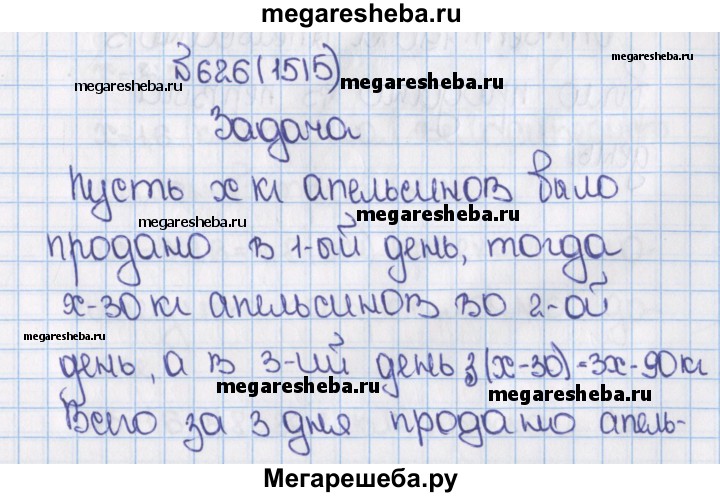 megaresheba.ru
№626(1515)
megaresheba.ru
Задача
Пусть x кг апельсинов было
megaresheba.ru
megaresheba.ru
продано в 1-ый день, тогда
x-30 кг апельсинов во 2-ой
megaresheba.ru
день, а в 3-ий день 3(x-30)=3x-90 кг
megaresheba.ru
megaresheba.ru
Всего за 3 дня продано апель-
Мегарешеба.ру